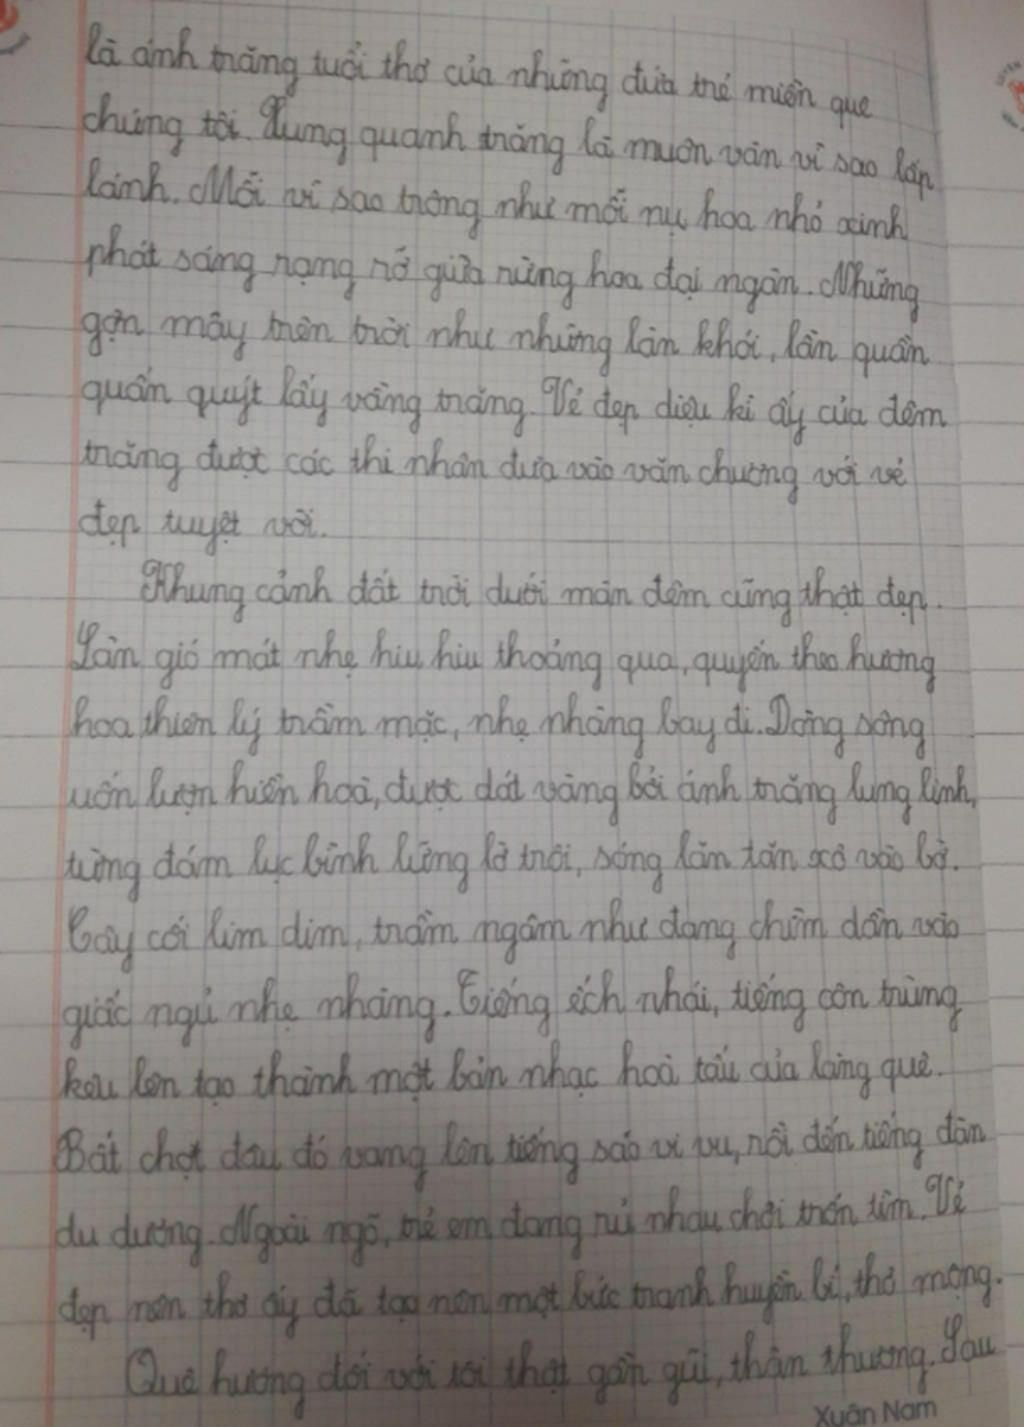 là ánh trăng tuổi thơ của những đứa trẻ miền quê
chúng tôi. Xung quanh trăng là muôn vàn vì sao lấp
lánh. Mỗi vì sao trông như mỗi nụ hoa nhỏ xinh
phát sáng rạng rỡ giữa rừng hoa đại ngàn. Những
gợn mây trên trời như những làn khói, lẩn quẩn
quấn quýt lấy vầng trăng. Vẻ đẹp diệu kì ấy của đêm
trăng được các thi nhân đưa vào văn chương với vẻ
đẹp tuyệt vời.
Khung cảnh đất trời dưới màn đêm cũng thật đẹp.
Làn gió mát nhẹ hiu hiu thoảng qua, quyến theo hương
hoa thiên lý trầm mặc, nhẹ nhàng bay đi. Dòng sông
uốn lượn hiền hoà, được dát vàng bởi ánh trăng lung linh,
từng đám lục bình lững lờ trôi, sóng lăn tăn xô vào bờ.
Cây cối lim dim, trầm ngâm như đang chìm dần vào
giấc ngủ nhẹ nhàng. Tiếng ếch nhái, tiếng côn trùng
kêu lên tạo thành một bản nhạc hoà tấu của làng quê.
Bất chợt đâu đó vang lên tiếng sáo vi vu, rồi đến tiếng đàn
du dương. Ngoài ngõ, trẻ em đang rủ nhau chơi trốn tìm. Vẻ
đẹp nên thơ ấy đã tạo nên một bức tranh huyền bí, thơ mộng.
Quê hương đối với tôi thật gần gũi, thân thương. Sau
Xuân Nam